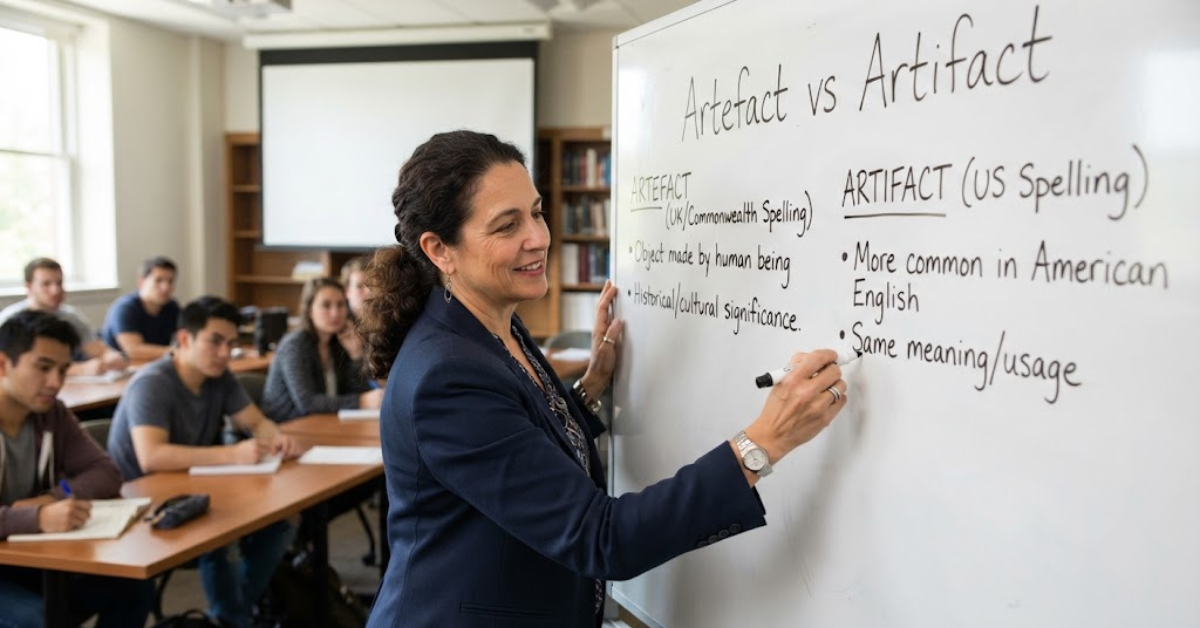 Artefact vs Artifact
ARTEFACT
(UK/Commonwealth Spelling)
• Object made by human being
• Historical/cultural significance.
ARTIFACT (US Spelling)
• More common in American
English
• Same meaning/usage